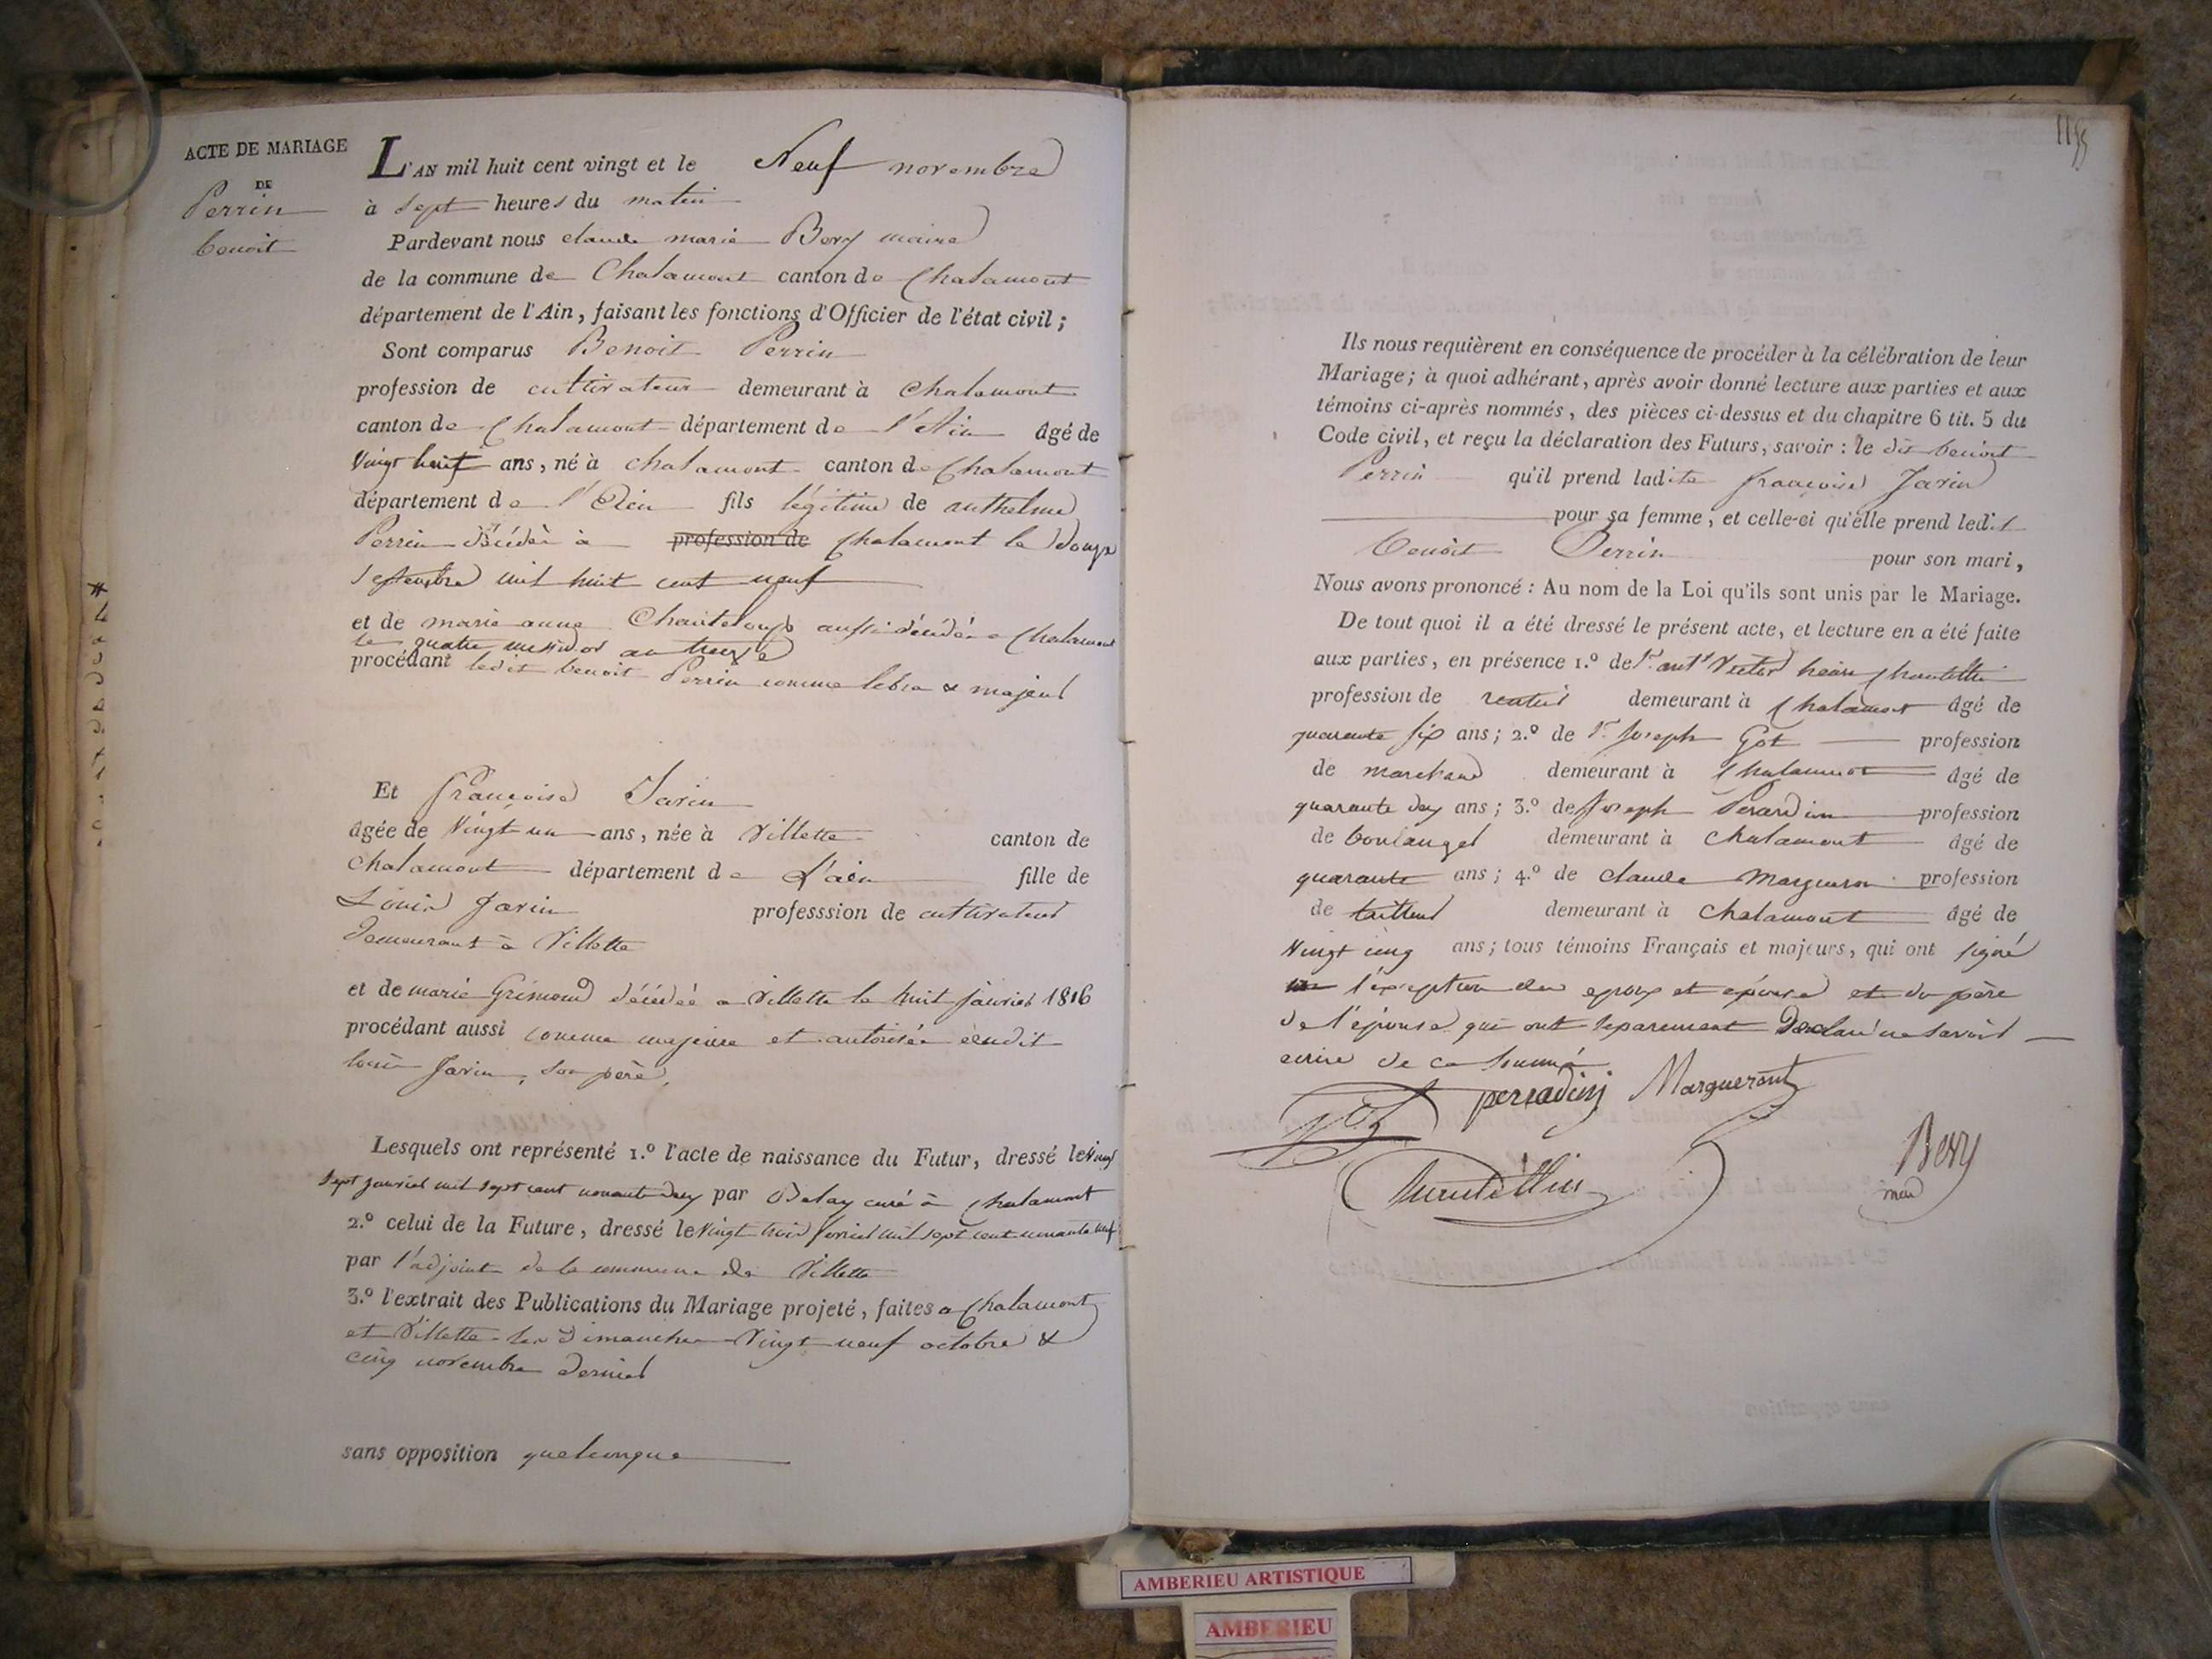 ACTE DE MARIAGE
DE
Perrin
benoit
L'AN mil huit cent vingt et le Neuf novembre
à sept heures du matin
Pardevant nous claude marie Bery maire
de la commune de Chalamont canton de Chalamont
département de l'Ain, faisant les fonctions d'Officier de l'état civil ;
Sont comparus Benoit Perrin
profession de cultivateur demeurant à Chalamont
canton de Chalamont département de l'Ain âgé de
Vingt huit ans, né à chalamont canton de Chalamont
département de l'Ain fils légitime de anthelme
Perrin décédé à profession de Chalamont le douze
septembre mil huit cent neuf
et de marie anne Chanteloup aussi décédée a Chalamont
le quatre messidor an treize
procédant ledit benoit Perrin comme libre & majeur
Et françoise Jarin
âgée de Vingt un ans, née à Villette canton de
Chalamont département de L'ain fille de
Louis Jarin professsion de cultivateur
demeurant à Villette
et de marie Grimond décédée a Villette le huit janvier 1816
procédant aussi comme majeure et autorisée dudit
louis Jarin, son père,
Lesquels ont représenté 1.º l'acte de naissance du Futur, dressé le vingt
sept janvier mil sept cent nonante deux par Belay curé à Chalamont
2.º celui de la Future, dressé le Vingt trois mil sept cent nonante neuf
par l'adjoint de la commune de Villette
3.º l'extrait des Publications du Mariage projeté, faites a Chalamont
et Villette les dimanches Vingt neuf octobre &
cinq novembre dernier
sans opposition quelconque
Ils nous requièrent en conséquence de procéder à la célébration de leur
Mariage ; à quoi adhérant, après avoir donné lecture aux parties et aux
témoins ci-après nommés, des pièces ci-dessus et du chapitre 6 tit. 5 du
Code civil, et reçu la déclaration des Futurs, savoir : le dit benoit
Perrin qu'il prend ladite françoise Jarin
pour sa femme, et celle-ci qu'elle prend ledit
benoit Perrin pour son mari,
Nous avons prononcé : Au nom de la Loi qu'ils sont unis par le Mariage.
De tout quoi il a été dressé le présent acte, et lecture en a été faite
aux parties, en présence 1.º de Sr. ant. Victor
profession de rentier demeurant à Chalamont âgé de
quarante six ans ; 2.º de Sr. Joseph Got profession
de marchand demeurant à Chalamont âgé de
quarante deux ans ; 3.º de Joseph Perardin profession
de boulanger demeurant à chalamont âgé de
quarante ans ; 4.º de claude Margueron profession
de tailleur demeurant à chalamont âgé de
Vingt cinq ans ; tous témoins Français et majeurs, qui ont signé
l'exception des epoux et épouse et du père
de l'épouse qui ont séparément déclaré ne savoir
ecrire de ce sommé
perradin Margueront
Bery
maire
AMBERIEU ARTISTIQUE
AMBERIEU